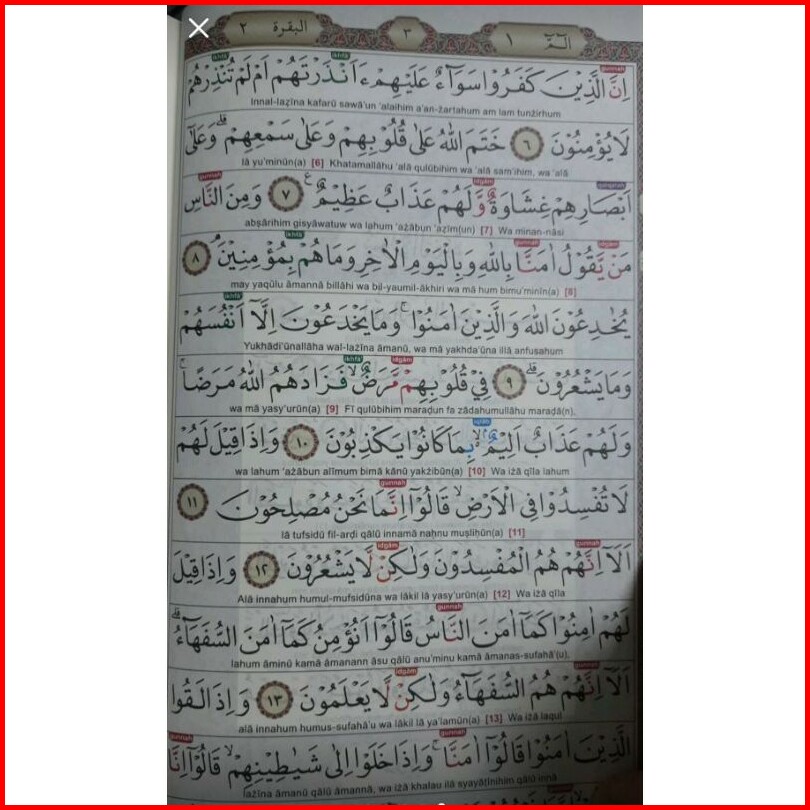 البقرة ٢
٣
الٓمّٓ ١
اِنَّ الَّذِيْنَ كَفَرُوْا سَوَاۤءٌ عَلَيْهِمْ ءَاَنْذَرْتَهُمْ اَمْ لَمْ تُنْذِرْهُمْ
Innal-lażīna kafarū sawā'un 'alaihim a'an-żartahum am lam tunżirhum
لَا يُؤْمِنُوْنَ ٦ خَتَمَ اللّٰهُ عَلٰى قُلُوْبِهِمْ وَعَلٰى سَمْعِهِمْ ۗ وَعَلٰٓى
lā yu'minūn(a) [6] Khatamallāhu 'alā qulūbihim wa 'alā sam'ihim, wa 'alā
اَبْصَارِهِمْ غِشَاوَةٌ وَّلَهُمْ عَذَابٌ عَظِيْمٌ ࣖ ٧ وَمِنَ النَّاسِ
abṣārihim gisyāwatuw wa lahum 'ażābun 'aẓīm(un) [7] Wa minan-nāsi
مَنْ يَّقُوْلُ اٰمَنَّا بِاللّٰهِ وَبِالْيَوْمِ الْاٰخِرِ وَمَا هُمْ بِمُؤْمِنِيْنَ ۘ ٨
may yaqūlu āmannā billāhi wa bil-yaumil-ākhiri wa mā hum bimu'minīn(a) [8]
يُخٰدِعُوْنَ اللّٰهَ وَالَّذِيْنَ اٰمَنُوْا ۚ وَمَا يَخْدَعُوْنَ اِلَّآ اَنْفُسَهُمْ
Yukhādi'ūnallāha wal-lażīna āmanū, wa mā yakhda'ūna illā anfusahum
وَمَا يَشْعُرُوْنَ ۗ ٩ فِيْ قُلُوْبِهِمْ مَّرَضٌ ۙ فَزَادَهُمُ اللّٰهُ مَرَضًا ۚ
wa mā yasy'urūn(a) [9] Fī qulūbihim maraḍun fa zādahumullāhu maraḍā(n).
وَلَهُمْ عَذَابٌ اَلِيْمٌ ۢ ۙ بِمَا كَانُوْا يَكْذِبُوْنَ ١٠ وَاِذَا قِيْلَ لَهُمْ
wa lahum 'ażābun alīmum bimā kānū yakżibūn(a) [10] Wa iżā qīla lahum
لَا تُفْسِدُوْا فِى الْاَرْضِ ۙ قَالُوْٓا اِنَّمَا نَحْنُ مُصْلِحُوْنَ ١١
lā tufsidū fil-arḍi qālū innamā naḥnu muṣliḥūn(a) [11]
اَلَآ اِنَّهُمْ هُمُ الْمُفْسِدُوْنَ وَلٰكِنْ لَّا يَشْعُرُوْنَ ١٢ وَاِذَا قِيْلَ
Alā innahum humul-mufsidūna wa lākil lā yasy'urūn(a) [12] Wa iżā qīla
لَهُمْ اٰمِنُوْا كَمَآ اٰمَنَ النَّاسُ قَالُوْٓا اَنُؤْمِنُ كَمَآ اٰمَنَ السُّفَهَاۤءُ ۗ
lahum āminū kamā āmanann āsu qālū anu'minu kamā āmanas-sufahā'(u).
اَلَآ اِنَّهُمْ هُمُ السُّفَهَاۤءُ وَلٰكِنْ لَّا يَعْلَمُوْنَ ١٣ وَاِذَا لَقُوا
alā innahum humus-sufahā'u wa lākil lā ya'lamūn(a) [13] Wa iżā laqul
الَّذِيْنَ اٰمَنُوْا قَالُوْٓا اٰمَنَّا ۚ وَاِذَا خَلَوْا اِلٰى شَيٰطِيْنِهِمْ ۙ قَالُوْٓا اِنَّا
lażīna āmanū qālū āmannā, wa iżā khalau ilā syayāṭīnihim qālū innā